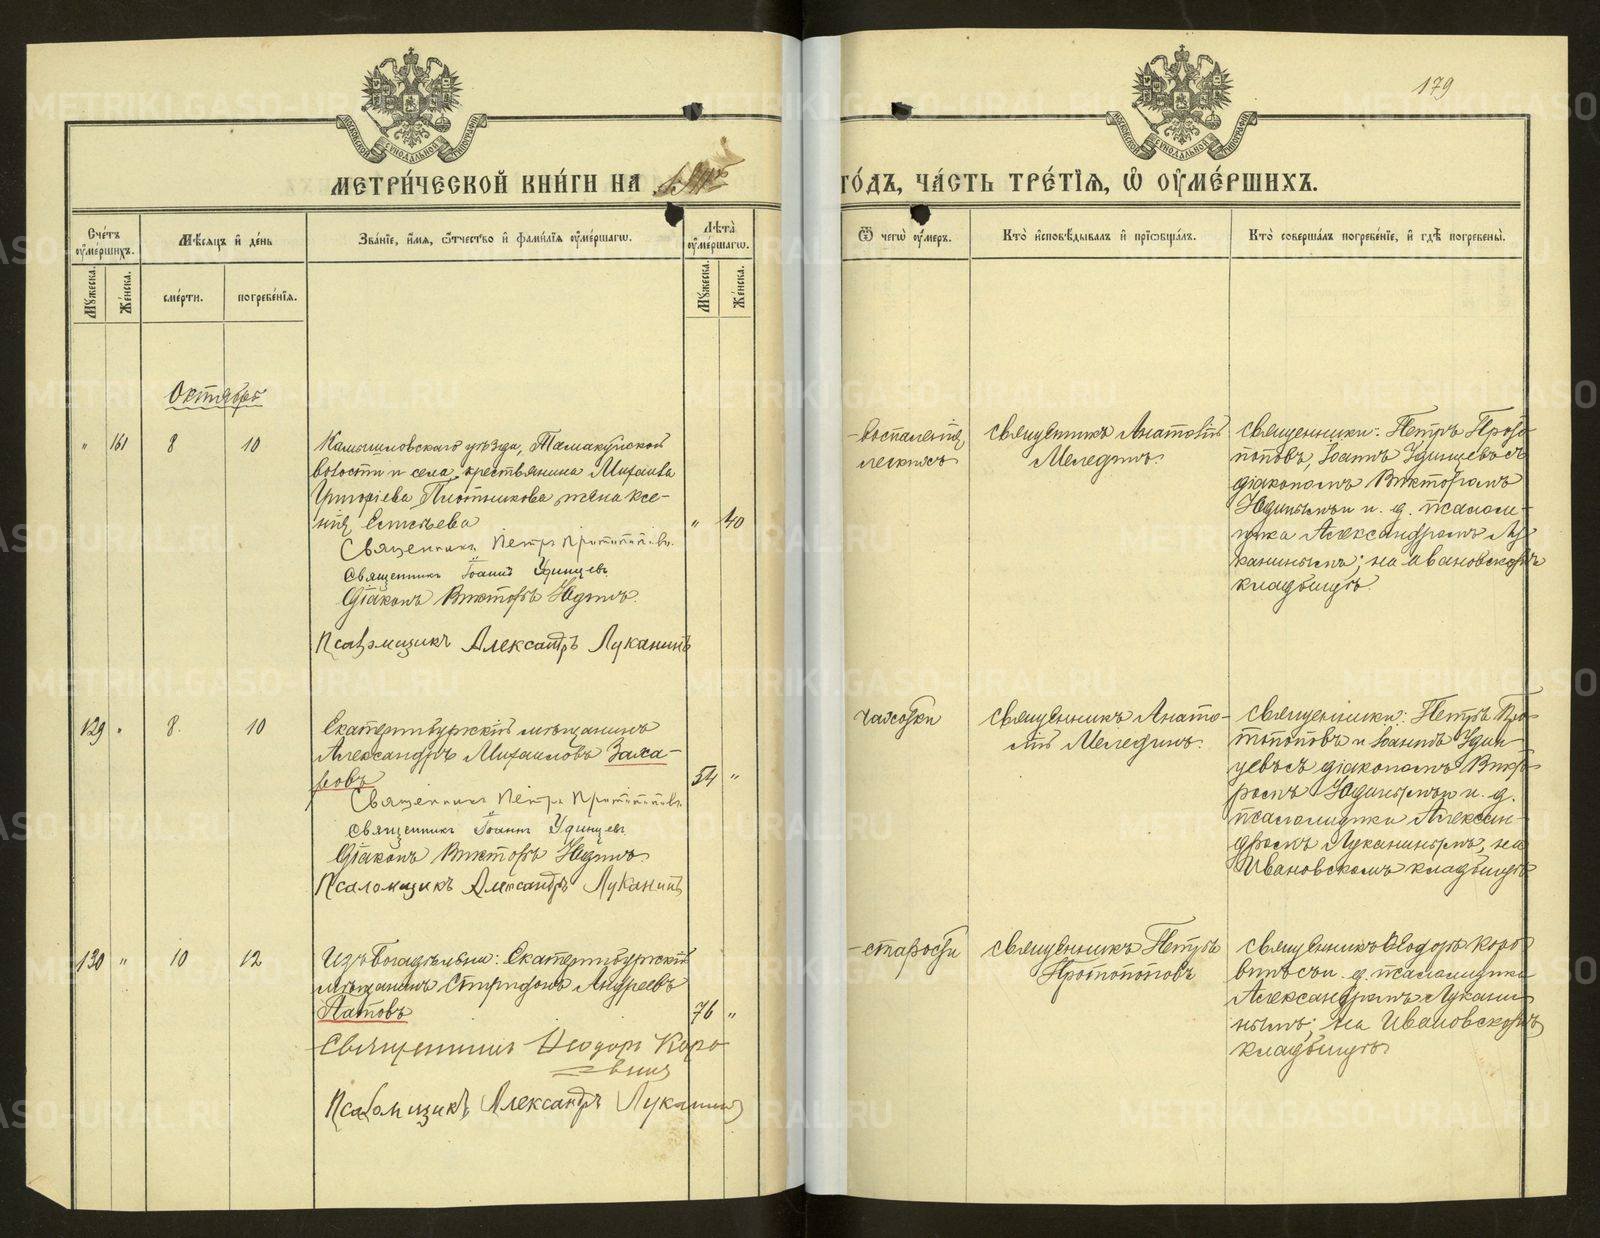 179
МЕТРИ́ЧЕСКОЙ КНИ́ГИ НА
ГО́ДЪ, ЧА́СТЬ ТРЕ́ТІѦ, Ѡ҆ ОУ҆МЕ́РШИХЪ.
Сче́тъ оу҆ме́ршихъ.
Мѣ́сяцъ и҆ де́нь
Зва́ніе, и҆́мя, ѻ҆́тчество и҆ фами́лія оу҆ме́ршагѡ.
Лѣ́та оу҆ме́ршагѡ.
Ѿ чегѡ̀ оу҆́меръ.
Кто̀ и҆сповѣ́дывалъ и҆ прїѡбща́лъ.
Кто̀ соверша́лъ погребе́ніе, и҆ гдѣ̀ погребены̀.
Му́жеска.
Же́нска.
сме́рти.
погребе́нія.
Му́жеска.
Же́нска.
Октябрь
" 161 8 10
Камышловскаго уѣзда, Тамакульской
волости и села, крестьянина Михаила
Григоріева Плотникова жена Ксе-
нія Евсѣева
" 40
Священникъ Петръ Протопоповъ.
Священникъ Іоаннъ Удинцевъ
Діаконъ Викторъ Юдинъ.
Псаломщикъ Александръ Луканинъ
воспаленія
легкихъ
священникъ Анатолій
Мелединъ.
священники: Петръ Прото-
поповъ, Іоаннъ Удинцевъ съ
діакономъ Викторомъ
Юдинымъ и и. д. псаломщ-
щика Александромъ Лу-
канинымъ; на Ивановскомъ
кладбищѣ.
129 " 8. 10
Екатеринбургскій мѣщанинъ
Александръ Михаиловъ Заха-
ровъ
54 "
Священникъ Петръ Протопоповъ.
Священникъ Іоаннъ Удинцевъ
Діаконъ Викторъ Юдинъ
Псаломщикъ Александръ Луканинъ
чахотки
священникъ Анато-
лій Мелединъ.
священники: Петръ Про-
топоповъ и Іоаннъ Удин-
цевъ съ діакономъ Викто-
ромъ Юдинымъ и и. д.
псаломщика Алексан-
дромъ Луканинымъ, на
Ивановскомъ кладбищѣ
130 " 10 12
Изъ богадѣльни: Екатеринбургскій
мѣщанинъ Спиридонъ Андреевъ
Патовъ
76 "
Священникъ Ѳеодоръ Коро
винъ
Псаломщикъ Александръ Луканинъ
старости
священникъ Петръ
Протопоповъ
священникъ Ѳеодоръ Коро
винъ съ и. д. псаломщика
Александромъ Лукани-
нымъ; на Ивановскомъ
кладбищѣ
METRIKI.GASO-URAL.RU